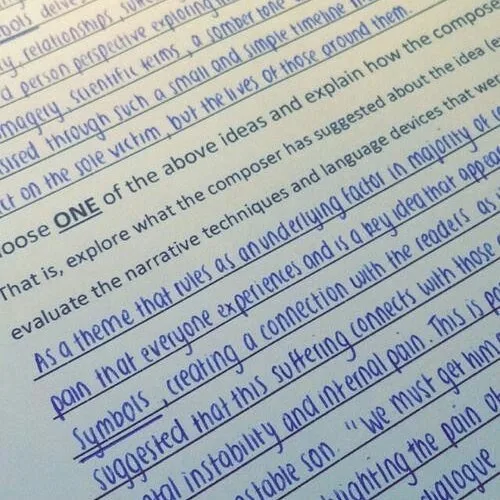 mbols delves
y, relationships, suffe
d person perspective exploring
imagery, scientific terms, a somber tone
sised through such a small and simple timeline
ect on the sole victim, but the lives of those around them.
oose ONE of the above ideas and explain how the compose
That is, explore what the composer has suggested about the idea
evaluate the narrative techniques and language devices that we
As a theme that rules as an underlying factor in majority of
pain that everyone experiences and is a key idea that appea
Symbols, creating a connection with the readers as
suggested that this suffering connects with those
tal instability and internal pain. This is
stable son. "We must get him
lighting the pain
alogue